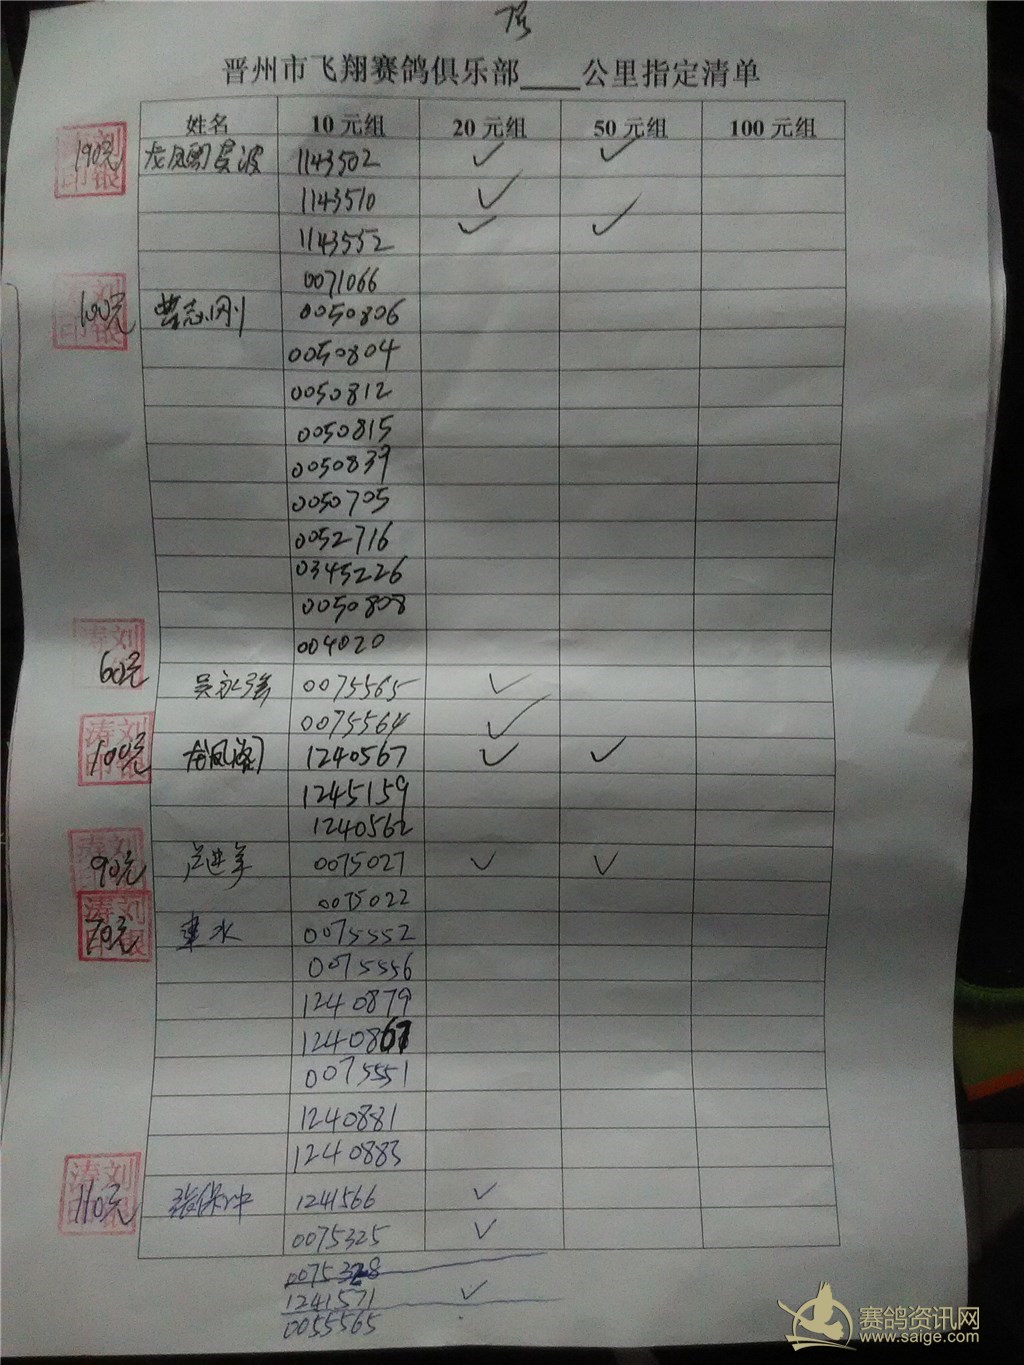 晋州市飞翔赛鸽俱乐部____公里指定清单
姓名 10元组 20元组 50元组 100元组
190元 1143502 ✓ ✓
1143510 ✓
1143552 ✓ ✓
0071066
100元 曹志刚 0050806
0050804
0050812
0050815
0050839
0050705
0052716
0345226
0050808
004020
60元 吴永强 0075565 ✓
0075564 ✓
100元 龙凤阁 1240567 ✓ ✓
1245159
1240562
90元 卢进军 0075027 ✓ ✓
0075022
70元 0075552
0075556
1240879
1240867
0075551
1240881
1240883
110元 张保中 1241566 ✓
0075325 ✓
0075328
1241571 ✓
0055565
赛鸽资讯网
www.saige.com